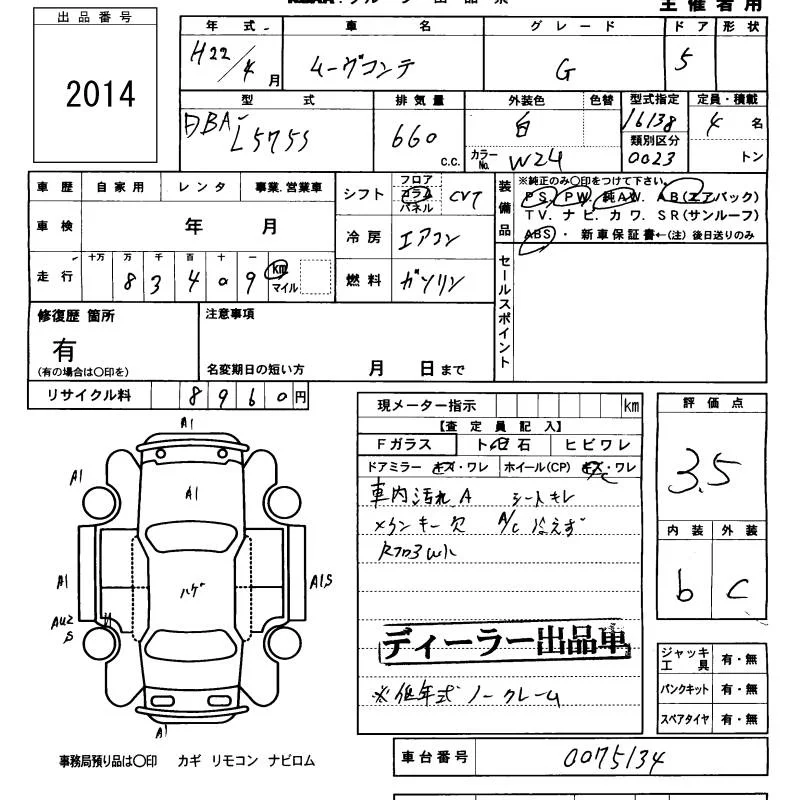 主催者用
出品番号
2014
年式 車名 グレード ドア 形状
H22/4月 ムーヴコンテ G 5
型式 排気量 外装色 色替 型式指定 定員・積載
DBA-L575S 660 c.c. 白 16138 4名
カラーNo. W24 類別区分 0023 トン
車歴 自家用 レンタ 事業.営業車
車検 年 月
走行 十万 万 千 百 十 一
83409 km マイル
シフト フロア コラム パネル CVT
冷房 エアコン
燃料 ガソリン
装備品 ※純正のみ〇印をつけて下さい。
PS. PW. 純AW. AB(エアバック)
TV. ナビ. カワ. SR(サンルーフ)
ABS ・ 新車保証書←(注) 後日送りのみ
セールスポイント
修復歴 箇所
有
(有の場合は〇印を)
注意事項
名変期日の短い方 月 日まで
リサイクル料 8960円
現メーター指示 km
【査定員記入】
Fガラス トビ石 ヒビワレ
ドアミラー キズ・ワレ ホイール(CP) キズ・ワレ
車内汚れ A シートキレ
メインキー欠 A/C 冷えず
ディーラー出品車
※低年式 ノークレーム
評価点
3.5
内装 外装
b C
ジャッキ工具 有・無
パンクキット 有・無
スペアタイヤ 有・無
A1
A1
A1
A1
A1S
ハゲ
AU2
S
A1
事務局預り品は〇印 カギ リモコン ナビロム
車台番号 0075134